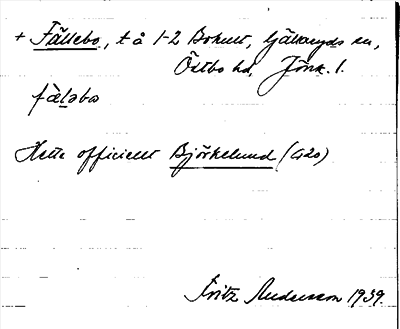 + Fällebo, t å 1-2 Bokult, Gällaryds sn,
Östbo hd, Jönk. l.
fälǝbo
Hette officiellt Björkelund (1920)
Fritz Andersson 1939.